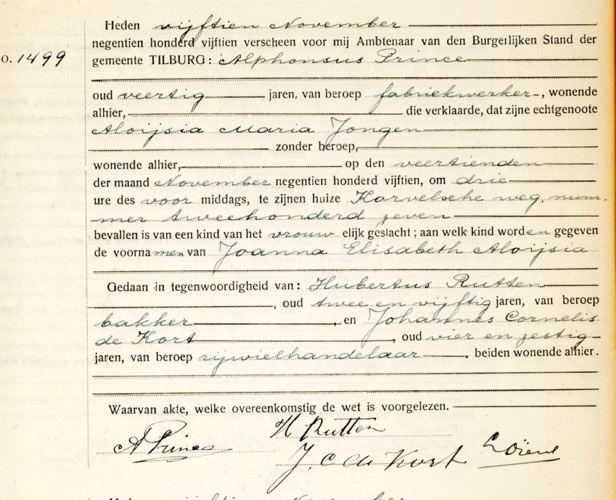 Heden vijftien November
negentien honderd vijftien verscheen voor mij Ambtenaar van den Burgerlijken Stand der
o. 1499 gemeente TILBURG: Alphonsus Prince
oud veertig jaren, van beroep fabriekwerker, wonende
alhier, die verklaarde, dat zijne echtgenoote
Aloijsia Maria Jongen
zonder beroep,
wonende alhier, op den veertienden
der maand November negentien honderd vijftien, om drie
ure des voor middags, te zijnen huize Korvelsche weg, num-
mer tweehonderd zeven
bevallen is van een kind van het vrouw elijk geslacht; aan welk kind worden gegeven
de voornamen van Joanna Elisabeth Aloijsia
Gedaan in tegenwoordigheid van: Hubertus Rutten
, oud twee en vijftig jaren, van beroep
bakker, en Johannes Cornelis
de Kort, oud vier en zestig
jaren, van beroep rijwielhandelaar, beiden wonende alhier.
Waarvan akte, welke overeenkomstig de wet is voorgelezen.
H Rutten
A Prince
J. C. de Kort